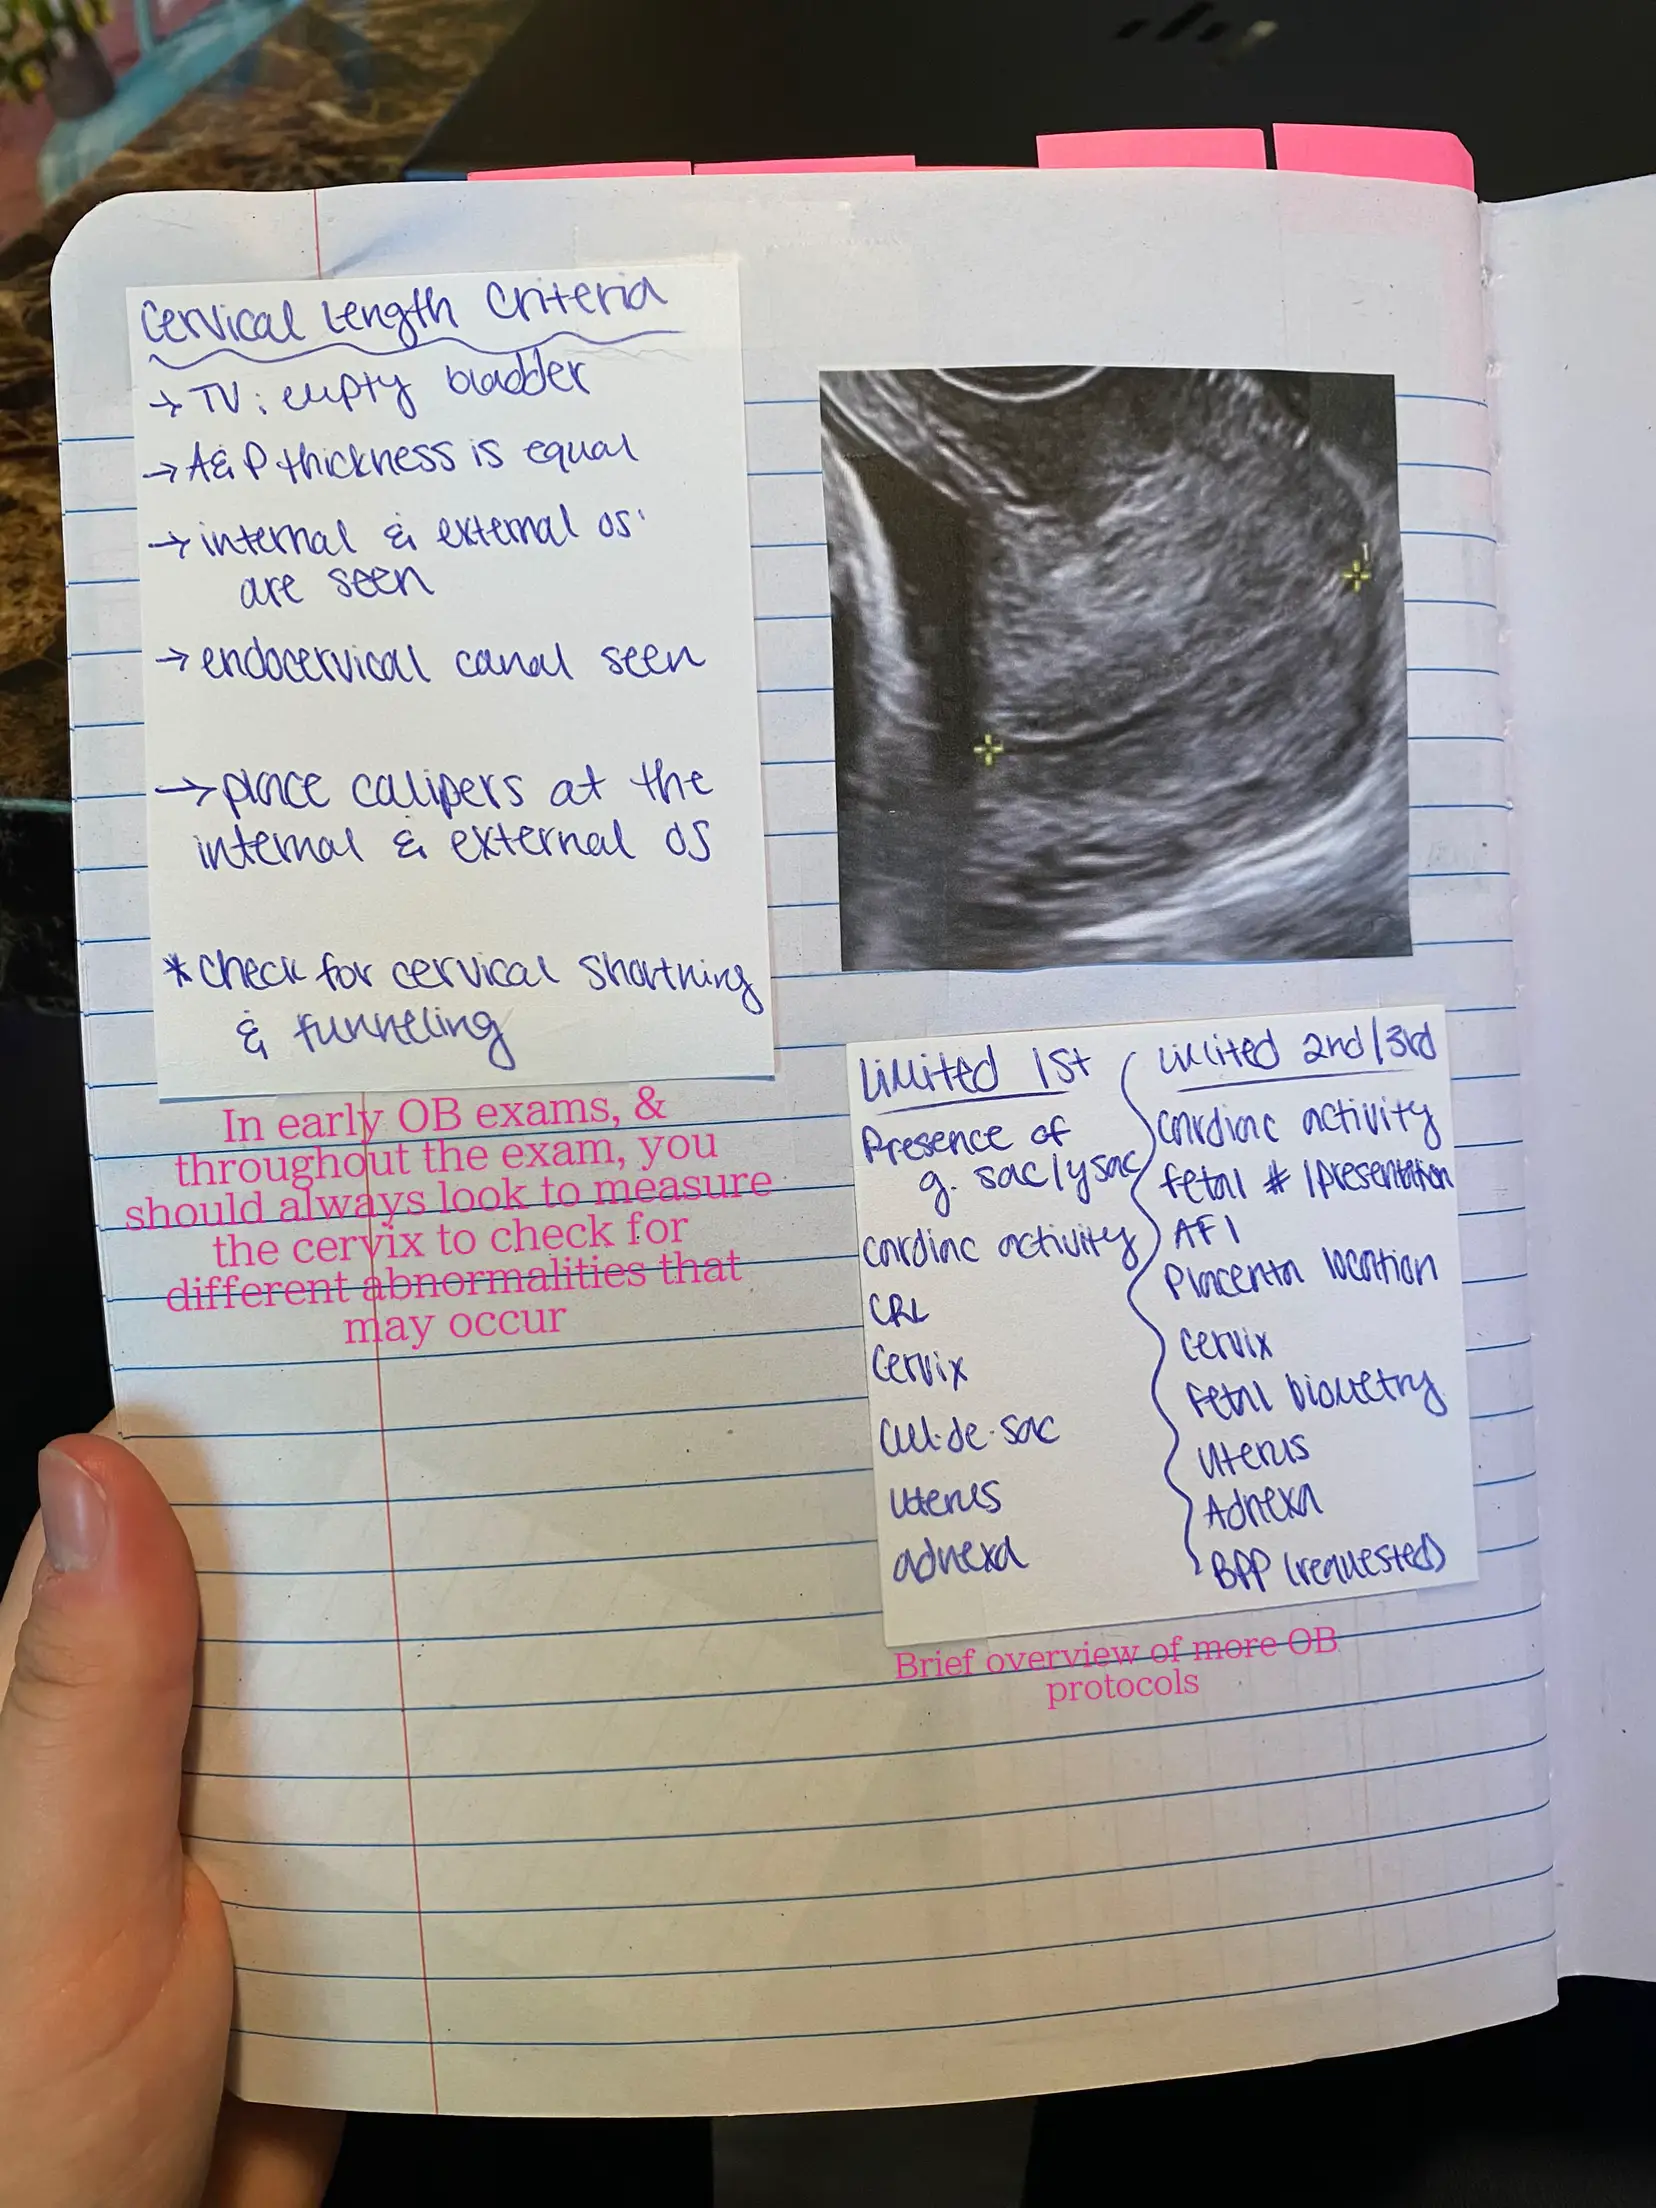 Cervical Length Criteria
→ TV: empty bladder
→ A & P thickness is equal
→ internal & external os
are seen
→ endocervical canal seen
→ place calipers at the
internal & external os
* Check for cervical shortning
& funneling
In early OB exams, &
throughout the exam, you
should always look to measure
the cervix to check for
different abnormalities that
may occur
1
Limited 1st
Presence of
g. sac/ysac
cardiac activity
CRL
Cervix
Cul-de-sac
Uterus
adnexa
Limited 2nd/3rd
cardiac activity
fetal # / presentation
AFI
Placenta location
Cervix
Fetal biometry
Uterus
Adnexa
BPP (requested)
Brief overview of more OB
protocols